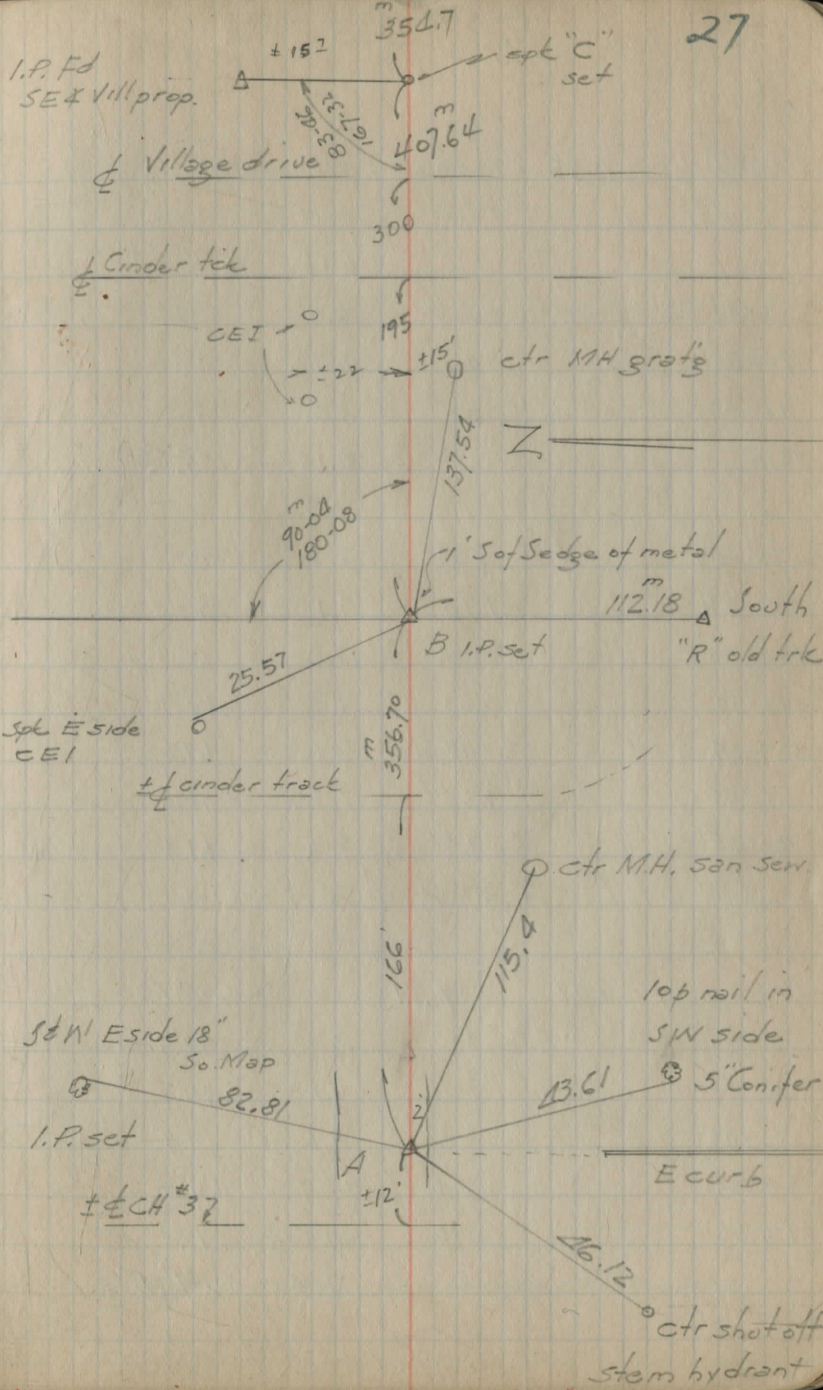 27
m
354.7
± 15
spk "C"
set
I.P. Fd
SE
Vill prop.
83-46
167-32
m
407.64
℄ Village drive
300
℄ Cinder tck
195
CEI
±15'
ctr MH grat'g
±22
137.54
m
90-04
180-08
1' S of S edge of metal
m
112.18
South
B I.P. set
"R" old trk
25.57
Spk E side
CEI
m
356.70
± ℄ cinder track
ctr M.H. san sew.
166'
115.4
10p nail in
SW side
5" Conifer
S&W E side 18"
So. Map
82.81
43.61
2'
I.P. set
A
E curb
±12'
± ℄ CH #37
46.12
ctr shut off
stem hydrant